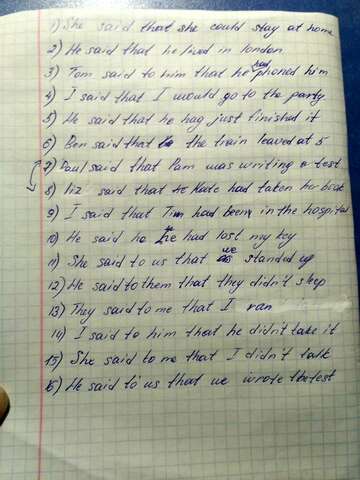 1) She said that she could stay at home
2) He said that he lived in london
3) Tom said to him that he had phoned him
4) I said that I would go to the party
5) He said that he has just finished it
6) Ben said that the train leaved at 5
7) Paul said that Pam was writing a test
8) Liz said that Kate had taken her book
9) I said that Tim had being in the hospital
10) He said he had lost my key
11) She said to us that we standed up
12) He said to them that they didn't sleep
13) They said to me that I ran
14) I said to him that he didn't take it
15) She said to me that I didn't talk
16) He said to us that we wrote the test